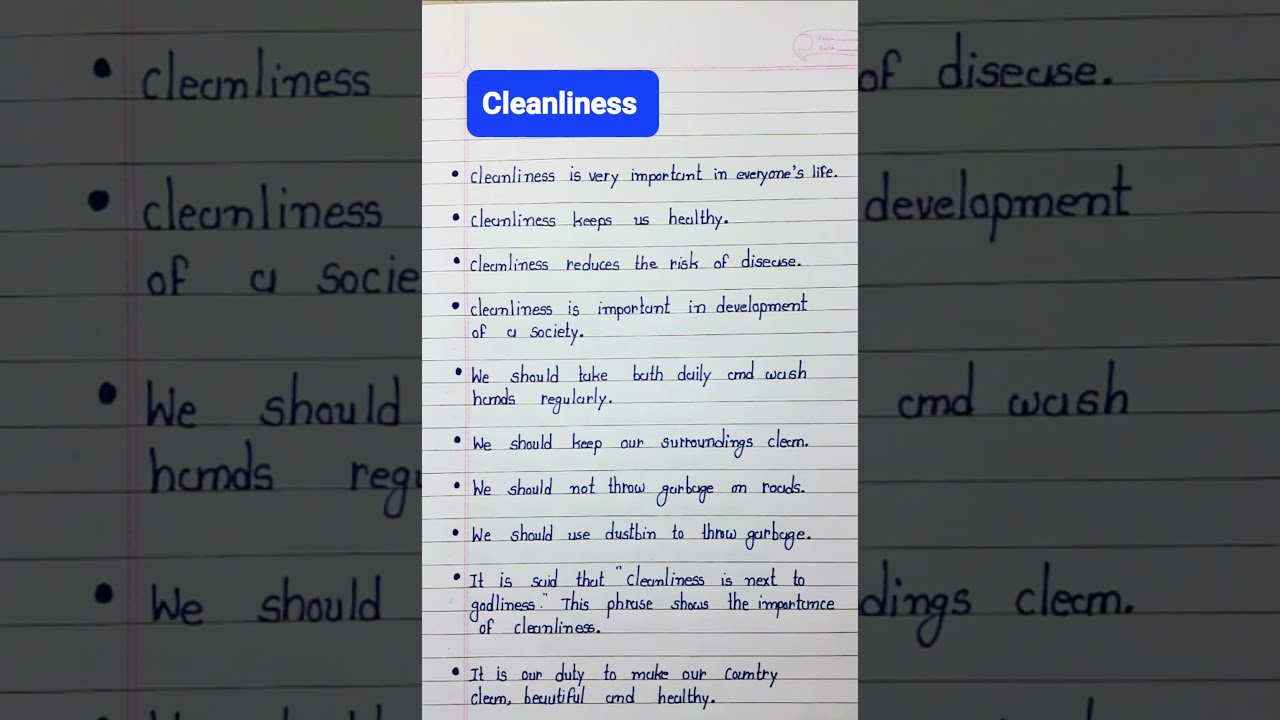 Cleanliness
• Cleanliness is very important in everyone's life.
• Cleanliness keeps us healthy.
• Cleanliness reduces the risk of disease.
• Cleanliness is important in development
of a society.
• We should take bath daily and wash
hands regularly.
• We should keep our surroundings clean.
• We should not throw garbage on roads.
• We should use dustbin to throw garbage.
• It is said that "Cleanliness is next to
godliness." This phrase shows the importance
of cleanliness.
• It is our duty to make our country
clean, beautiful and healthy.